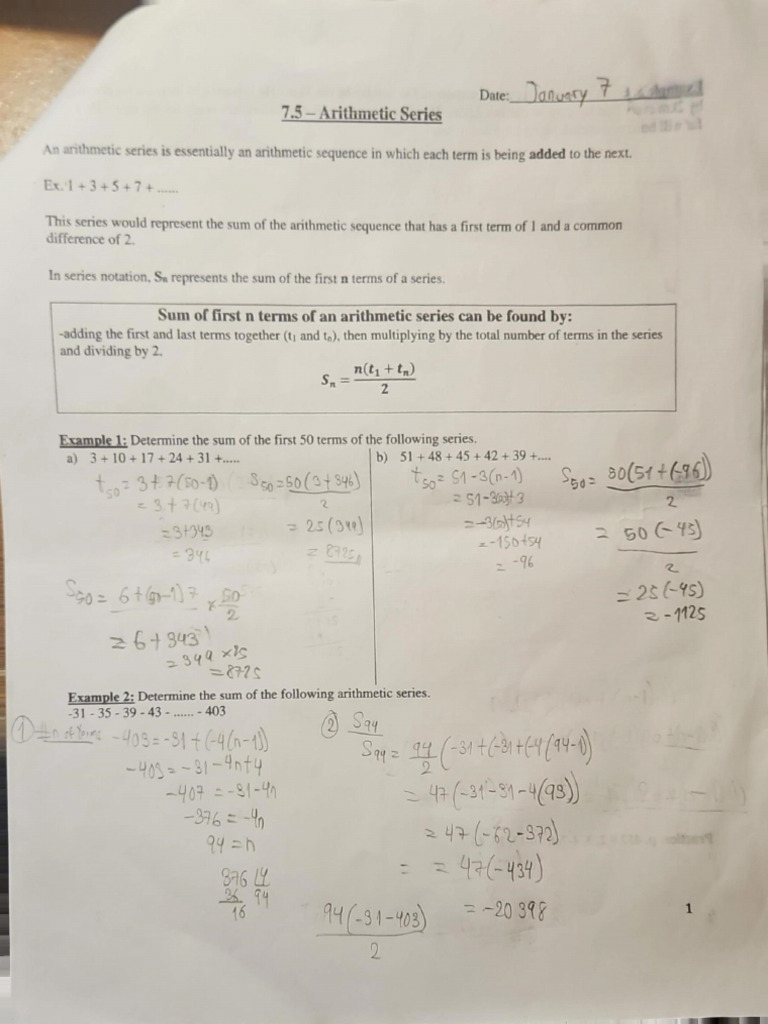 Date: January 7
7.5 – Arithmetic Series
An arithmetic series is essentially an arithmetic sequence in which each term is being added to the next.
Ex. 1 + 3 + 5 + 7 + ......
This series would represent the sum of the arithmetic sequence that has a first term of 1 and a common
difference of 2.
In series notation, Sn represents the sum of the first n terms of a series.
Sum of first n terms of an arithmetic series can be found by:
-adding the first and last terms together (t1 and tn), then multiplying by the total number of terms in the series
and dividing by 2.
Sn = n(t1 + tn) / 2
Example 1: Determine the sum of the first 50 terms of the following series.
a) 3 + 10 + 17 + 24 + 31 +.....
t50 = 3 + 7(50-1)
= 3 + 7(49)
= 3+343
= 346
S50 = 50(3+346) / 2
= 25(349)
= 8725
S50 = 6+(50-1)7 × 50/2
= 6+343
= 349 ×25
= 8725
b) 51 + 48 + 45 + 42 + 39 +....
t50 = 51-3(n-1)
= 51-3(n)+3
= -3(n)+54
= -150+54
= -96
S50 = 50(51+(-96)) / 2
= 50(-45) / 2
= 25(-45)
= -1125
Example 2: Determine the sum of the following arithmetic series.
-31 - 35 - 39 - 43 - ...... - 403
① # n of terms
-403 = -31+(-4(n-1))
-403 = -31-4n+4
-407 = -31-4n
-376 = -4n
94 = n
376 4
36 94
16
② S94
S94 = 94/2 (-31+(-31+(-4(94-1))
= 47(-31-31-4(93))
= 47(-62-372)
= = 47(-434)
= -20 398
94(-31-403) / 2
1